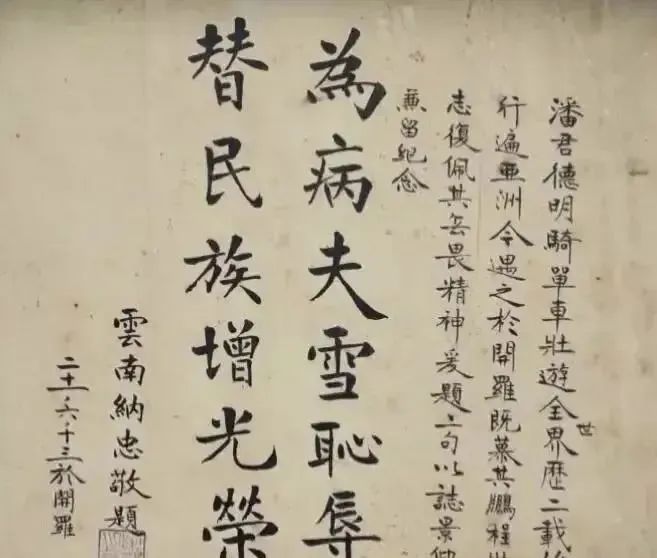 潘君德明騎單車壯遊全世界歷二載
行遍亞洲今遇之於開羅既慕其鵬程
志復佩其無畏精神爰題二句以誌景仰
兼留紀念
為病夫雪恥辱
替民族增光榮
雲南納忠敬題
二十一·六·十三於開羅